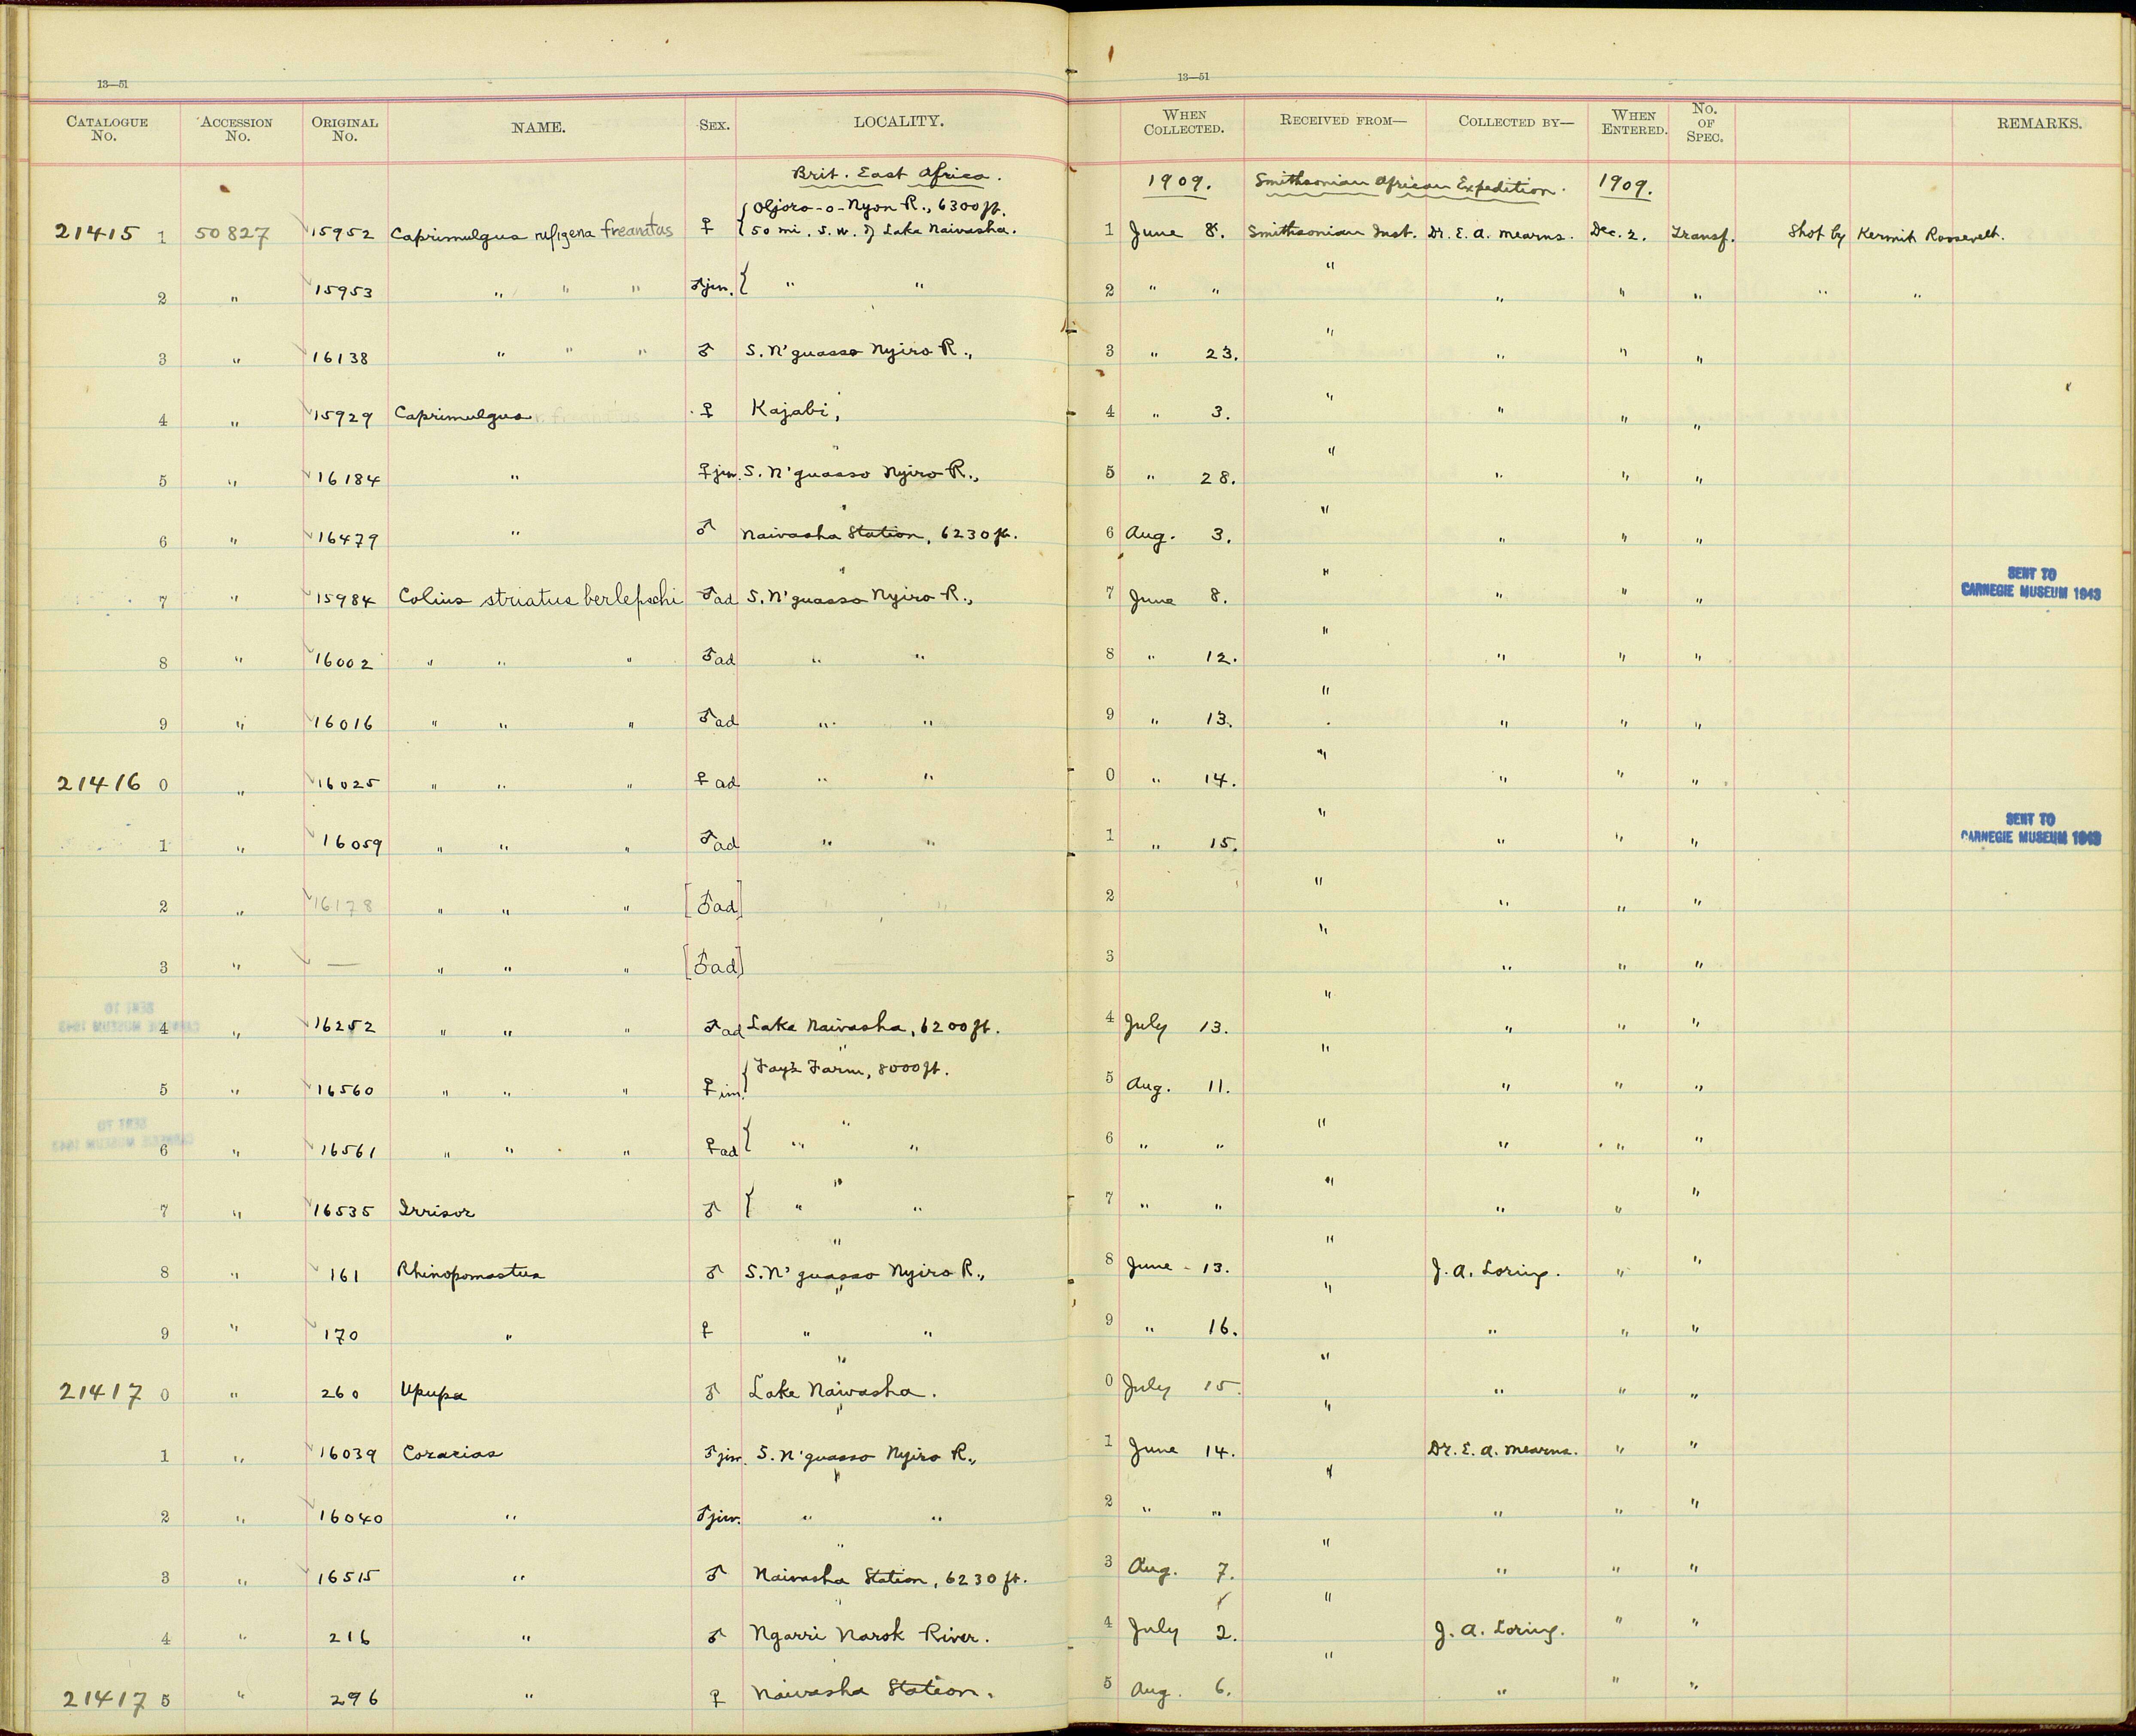 13—51
13—51
CATALOGUE No. ACCESSION No. ORIGINAL No. NAME. SEX. LOCALITY. WHEN COLLECTED. RECEIVED FROM— COLLECTED BY— WHEN ENTERED. No. OF SPEC. REMARKS.
Brit. East Africa. 1909. Smithsonian African Expedition. 1909.
{ Oljoro-o-Nyon R., 6300 ft.
21415 1 50827 15952 Caprimulgus rufigena freanatus ♀ { 50 mi. S.W. of Lake Naivasha. 1 June 8. Smithsonian Inst. Dr. E. A. Mearns. Dec. 2. Transf. Shot by Kermit Roosevelt.
2 " 15953 " " " ♂ juv. { " " 2 " " " " " " " "
3 " 16138 " " " ♂ S. N'guasso Nyiro R., 3 " 23. " " " "
4 " 15929 Caprimulgus r. freanatus ♀ Kajabi, 4 " 3. " " " "
5 " 16184 " ♀ juv. " S. N'guasso Nyiro R., 5 " 28. " " " "
6 " 16479 " ♂ " Naivasha Station, 6230 ft. 6 Aug. 3. " " " "
7 " 15984 Colius striatus berlepschi ♂ ad " S. N'guasso Nyiro R., 7 June 8. " " " " SENT TO CARNEGIE MUSEUM 1943
8 " 16002 " " " ♂ ad " " 8 " 12. " " " "
9 " 16016 " " " ♂ ad " " 9 " 13. " " " "
21416 0 " 16025 " " " ♀ ad " " 0 " 14. " " " "
1 " 16059 " " " ♂ ad " " 1 " 15. " " " " SENT TO CARNEGIE MUSEUM 1943
2 " 16178 " " " [♂ ad] 2 " " " "
3 " — " " " [♂ ad] 3 " " " "
4 " 16252 " " " ♂ ad Lake Naivasha, 6200 ft. 4 July 13. " " " "
5 " 16560 " " " ♀ im. { " Fay's Farm, 8000 ft. 5 Aug. 11. " " " "
6 " 16561 " " " ♀ ad { " " " 6 " " " " " "
7 " 16535 Irrisor ♂ { " " " 7 " " " " " "
8 " 161 Rhinopomastus ♂ " S. N'guasso Nyiro R., 8 June 13. " J. A. Loring. " "
9 " 170 " ♀ " " " 9 " 16. " " " "
21417 0 " 260 Upupa ♂ " Lake Naivasha. 0 July 15. " " " "
1 " 16039 Coracias ♂ juv. " S. N'guasso Nyiro R., 1 June 14. " Dr. E. A. Mearns. " "
2 " 16040 " ♂ juv. " " " 2 " " " " " "
3 " 16515 " ♂ " Naivasha Station, 6230 ft. 3 Aug. 7. " " " "
4 " 216 " ♂ " Ngarri Narok River. 4 July 2. " J. A. Loring. " "
21417 5 " 296 " ♀ Naivasha Station. 5 Aug. 6. " " " "